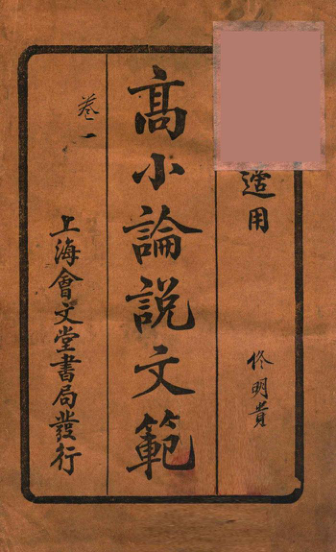 適用
佟明貴
高小論説文範
卷一
上海會文堂書局發行